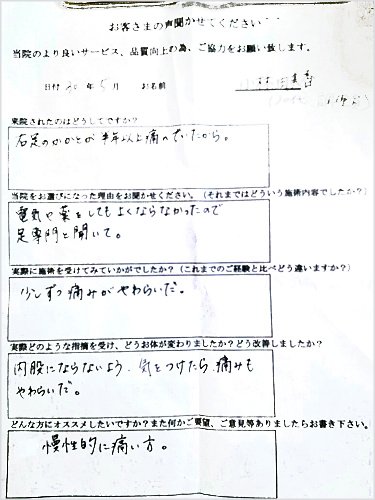 お客さまの声聞かせてください・・
当院のより良いサービス、品質向上の為、ご協力をお願い致します。
日付 30 年 5 月 お名前
来院されたのはどうしてですか?
右足のかかとが半年以上痛
当院をお選びになった理由をお聞かせください。(それまではどういう施術内容でしたか?)
電気や薬をしてもよくならなかったので
足専門と聞いて。
実際に施術を受けてみていかがでしたか?(これまでのご経験と比べどう違いますか?)
少しずつ痛みがやわらいだ。
実際どのような指摘を受け、どうお体が変わりましたか?どう改善しましたか?
内股にならないよう、気をつけたら、痛みも
やわらいだ。
どんな方にオススメしたいですか?また何かご要望、ご意見等ありましたらお書き下さい。
慢性的に痛い方。